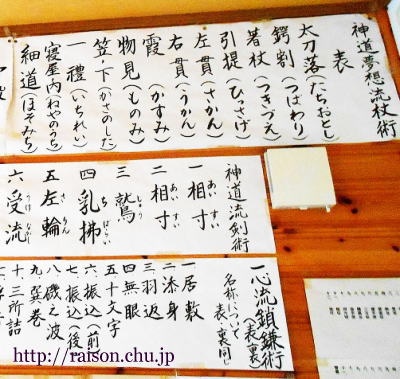 神道夢想流杖術
表
太刀落(たちおとし)
鍔割(つばわり)
著杖(つきづえ)
引提(ひっさげ)
左貫(さかん)
右貫(うかん)
霞(かすみ)
物見(ものみ)
笠ノ下(かさのした)
一禮(いちれい)
寝屋内(ねやのうち)
細道(ほそみち)
神道流剣術
一 相寸
二 相寸
三 鷲
四 乳拂
五 左輪
六 受流
一心流鎖鎌術(表、裏)
名称について
表、裏同じ
一居敷
二添身
三羽返
四無眼
五十文字
六振込(前
七振込(後
八磯之波
九巽巻
十三所詰
http://raison.chu.jp